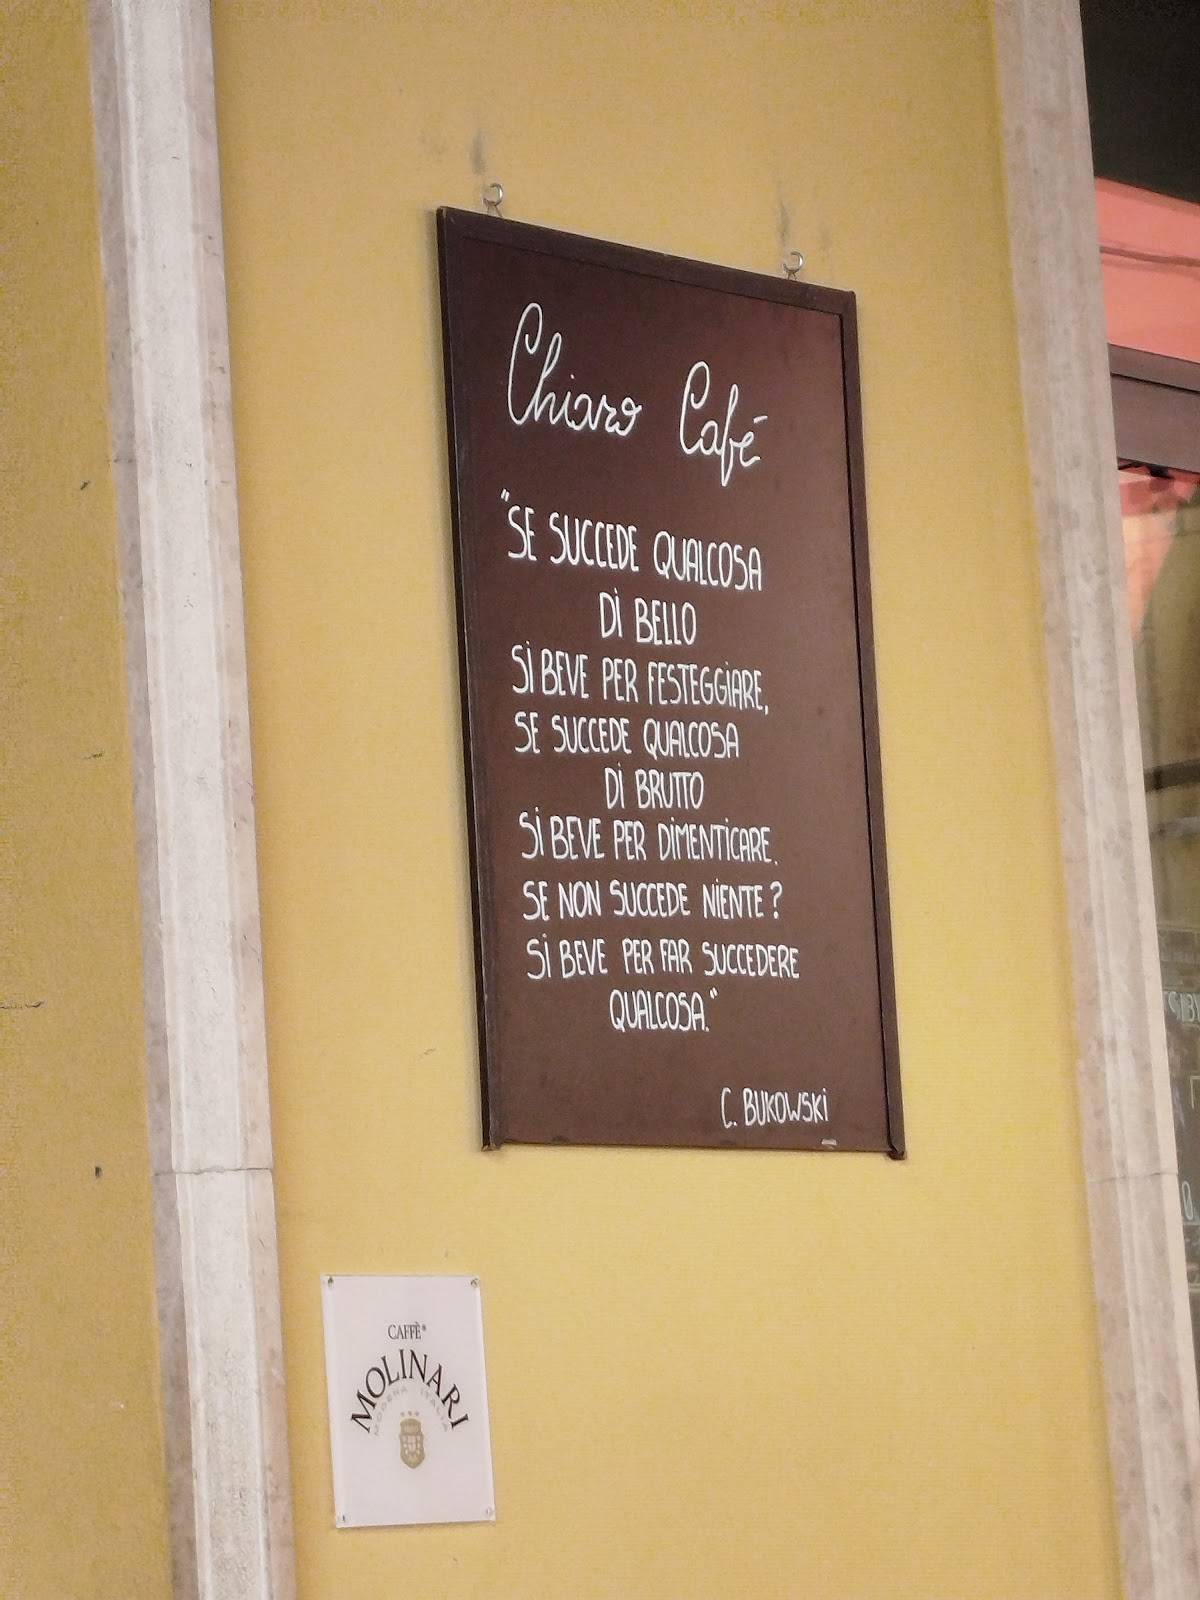 Chiaro Café
"SE SUCCEDE QUALCOSA
DI BELLO
SI BEVE PER FESTEGGIARE,
SE SUCCEDE QUALCOSA
DI BRUTTO
SI BEVE PER DIMENTICARE.
SE NON SUCCEDE NIENTE?
SI BEVE PER FAR SUCCEDERE
QUALCOSA."
C. BUKOWSKI
CAFFÈ®
MOLINARI
MODENA ITALIA